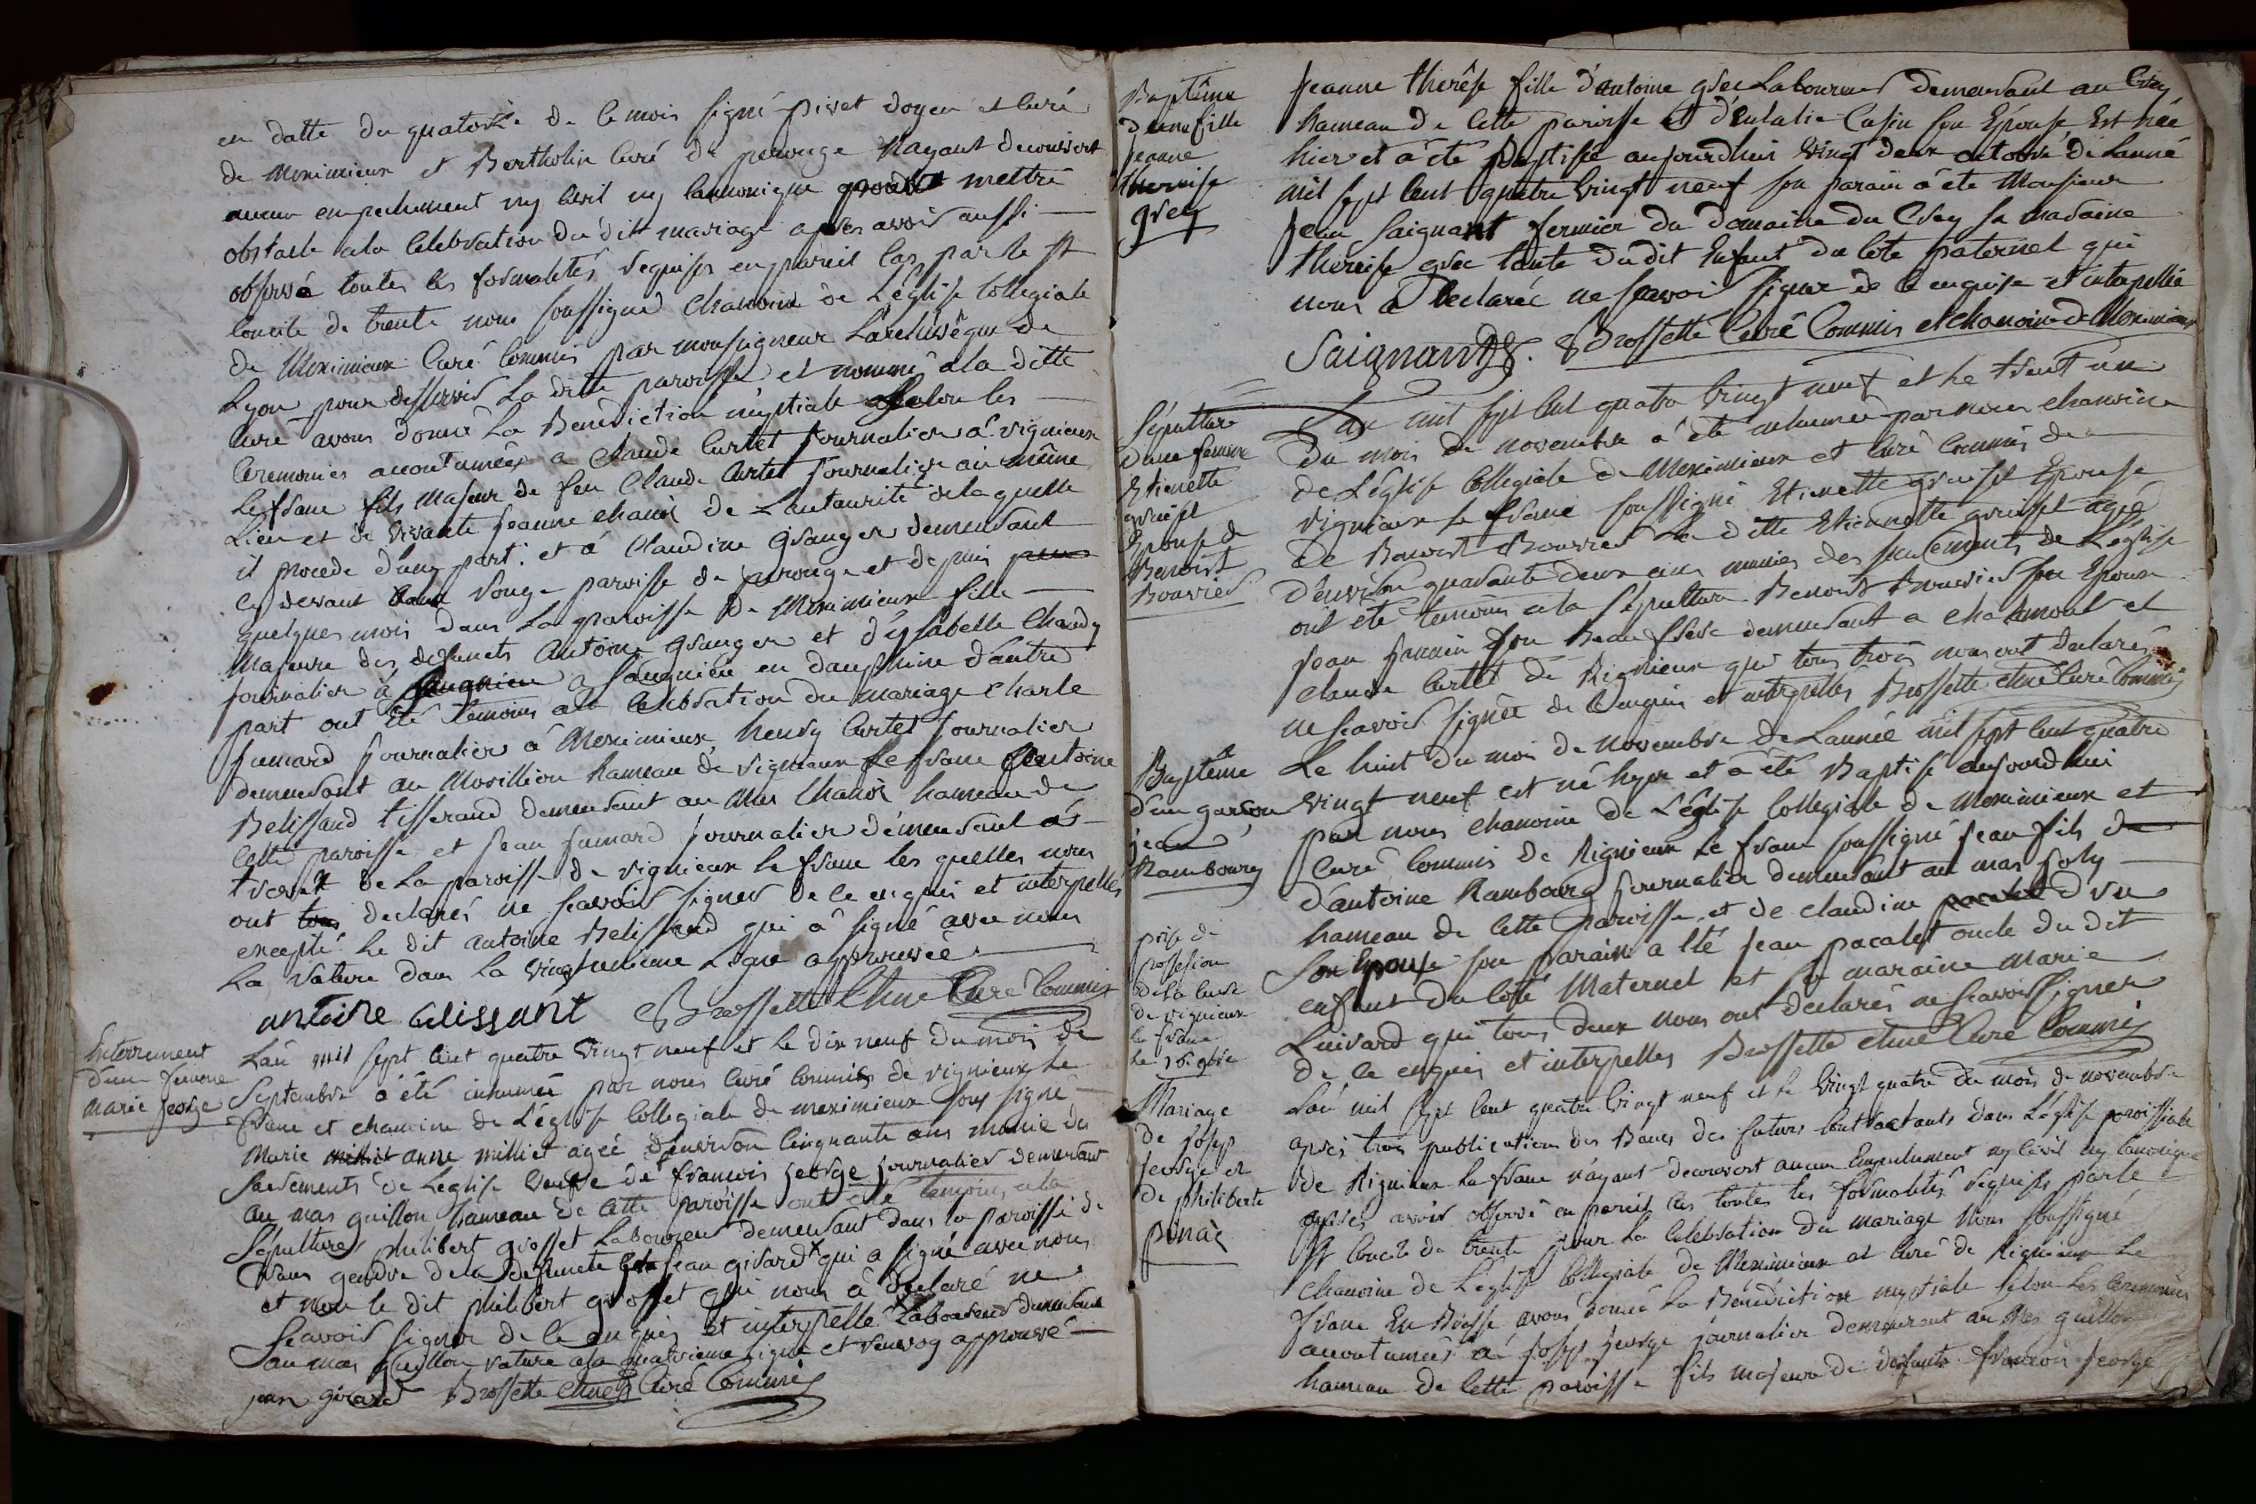 en datte du quatorze de ce mois signé pivet doyen et curé
de Meximieux et Bertholin curé de perouge Nayant decouvert
aucun empechement ny civil ny canonique mettre
obstacle ala celebration du dit mariage apres avoir aussi
observé toutes les formalités requises en pareil cas par le st
concile de trente nous soussigné chanoine de L'église Collegiale
de Meximieux Curé commis par monseigneur L'archevêque de
Lyon pour desservir La ditte paroisse et nommé ala ditte
cure avons donné La Benediction nuptiale selon les
ceremonies accoutumées a Claude Curtet journalier a rignieux
le franc fils majeur de feu Claude Curtet journalier au même
Lieu et de vivante jeanne chanoz de Lautaurité de la quelle
il procede d'une part: et a Claudine Granger demeurant
cy devant rouge paroisse de perouge et depuis
quelques mois dans La paroisse de Meximieux fille
Majeure des defuncts Antoine granger et d'ysabelle Chandy
journalier a a saugnieu en dauphiné d'autre
part ont été temoins ala celebration du mariage Charle
jumard journalier a Meximieux henry Curtet journalier
demeurant au Morillion hameau de rignieux le franc antoine
Belissand tisserand demeurant au Mas Chanoz hameau de
cette paroisse et jean jumard journalier demeurant a
de La paroisse de rignieux le franc les quelles nous
ont tous declarés ne scavoir signer de ce enquis et interpellés
excepté Le dit antoine Belissand qui a signé avec nous
La rature dans La vingtunieme Ligne approuvée
antoine Belissant Brossette Chne Curé Commis
Enterrement
d'une femme
Marie george
L'an mil sept cent quatre vingt neuf et le dix neuf du mois de
Septembre a été inhumée par nous curé commis de rignieux le
franc et chanoine de L'église Collegiale de meximieux soussigné
Marie milliet anne milliet agée d'environ cinquante ans munie des
sacrements de L'eglise veufve de francois george journalier demeurant
au mas guillon hameau de cette paroisse ont été temoins ala
sepulture philibert grosset Laboureur demeurant dans la paroisse de
gendre dela defuncte jean girard x qui a signé avec nous
et non le dit philibert grosset qui nous a declaré ne
scavoir signer de ce enquis et interpellé x Laboureur demeurant
au mas guillon rature ala quatrieme ligne et renvoy approuvé
jean girard Brossette Chne Curé Commis
Baptême
d'une fille
jeanne
therese
grey
jeanne thérése fille d'antoine grey Laboureur demeurant au Crey
hameau de cette paroisse et d'eulalie Casin son Epouse Est née
hier et a été Baptissé aujourdhui vingt deux octobre de Lanné
mil sept cent quatre vingt neuf son parain a été Monsieur
jean Saignant fermier du domaine du Crey sa maraine
therese grey tante du dit Enfant du coté paternel qui
nous a declarée ne scavoir signer de ce enquise et interpellée
Saignant. Brossette Curé Commis et chanoine de Meximieux
Sépulture
d'une femme
Etienette
gruisset
Epouse de
Benoist
Bouvier
L'an mil sept cent quatre vingt neuf et le trent un
du mois de novembre a été inhumée par nous chanoine
de L'église Collegiale de Meximieux et curé commis de
rignieux le franc soussigné Etienette gruisset Epouse
de Benoist Bouvier La ditte Etienette gruisset agée
d'environ quarante deux ans munies des sacrements de L'église
ont été temoins ala sépulture Benoist Bouvier son Epoux
jean son Beaufrère demeurant a chalamont et
claude Curtet de Rignieux qui tous trois nous ont declarés
ne scavoir signer de ce enquis et interpellés Brossette chne Curé Commis
Baptême
d'un garcon
jean
Rambourg
Le huit du mois de novembre de Lannée mil sept cent quatre
vingt neuf est né hyer et a été Baptissé aujourdhui
par nous chanoine de L'église Collegiale de Meximieux et
Curé commis de Rignieux Le franc soussigné jean fils
d'antoine Rambourg journalier demeurant au mas joly
hameau de cette paroisse et de claudine
son Epouse son parain a été jean pacalet oncle du dit
enfant du coté Maternel et sa maraine marie
Luivard qui tous deux nous ont declarés ne scavoir signer
de ce enquis et interpellés Brossette chne Curé Commis
prise de
possession
dela cure
de rignieux
le franc
le 16 9bre
Mariage
de josep
george et
de philiberte
pinaz
L'an mil sept cent quatre vingt neuf et le vingt quatre du mois de novembre
apres trois publications des Bancs des futurs contractants dans L'église paroissiale
de Rignieux Le franc n'ayant decouvert aucun Empechement ny civil ny canonique
apres avoir observé en pareil cas toutes les formalités requises par le
st concile de trente pour La celebration du mariage Nous soussigné
chanoine de L'église Collegiale de Meximieux et curé de Rignieux Le
franc En Bresse avons donné La Bénédiction nuptiale selon Les ceremonies
accoutumées a josep george journalier demeurant au Mas guillon
hameau de cette paroisse fils majeur de defunts francois george